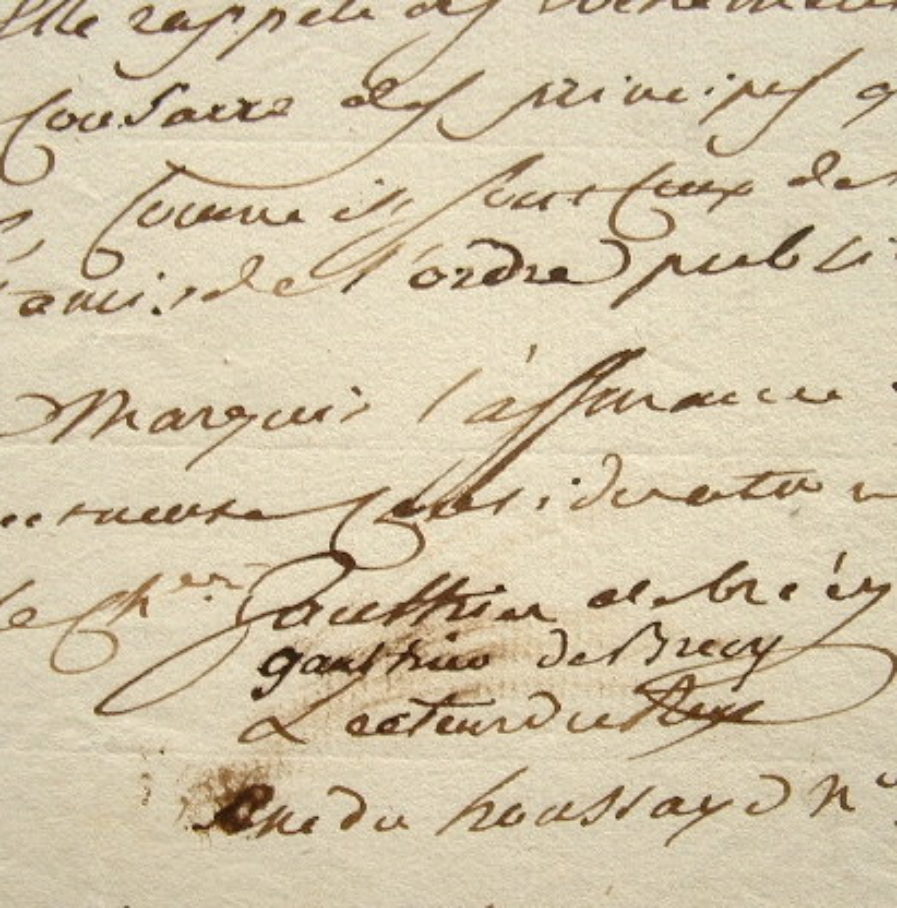 Elle rappele des
Consacre des principes
Comme ils sont Ceux des
amis de l'ordre public
Marquis l'assurance
Consideration
le Ch.er Gauthier de brécy
gauthier de Brecy
Lecteur du Roy
Rue du houssay